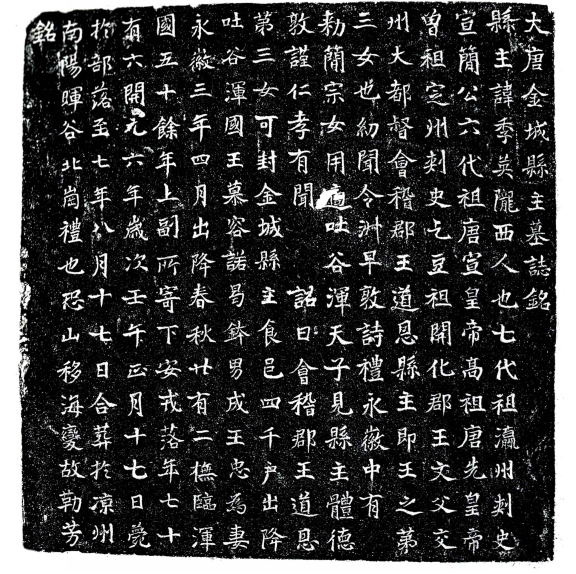 大唐金城縣主墓誌銘
縣主諱季英隴西人也七代祖瀛州刺史
宣簡公六代祖唐宣皇帝高祖唐先皇帝
曾祖定州刺史乞豆祖開化郡王文父交
州大都督會稽郡王道恩縣主即王之第
三女也幼聞令淑早敦詩禮永徽中有
勑簡宗女用適吐谷渾天子見縣主體德
敦謹仁孝有聞 詔曰會稽郡王道恩
第三女可封金城縣主食邑四千户出降
吐谷渾國王慕容諾曷鉢男成王忠為妻
永徽三年四月出降春秋廿有二撫臨渾
國五十餘年上副所寄下安戎落年七十
有六開元六年歲次壬午正月十七日薨
於部落至七年八月十七日合葬於凉州
南陽暉谷北崗禮也恐山移海變故勒芳
銘